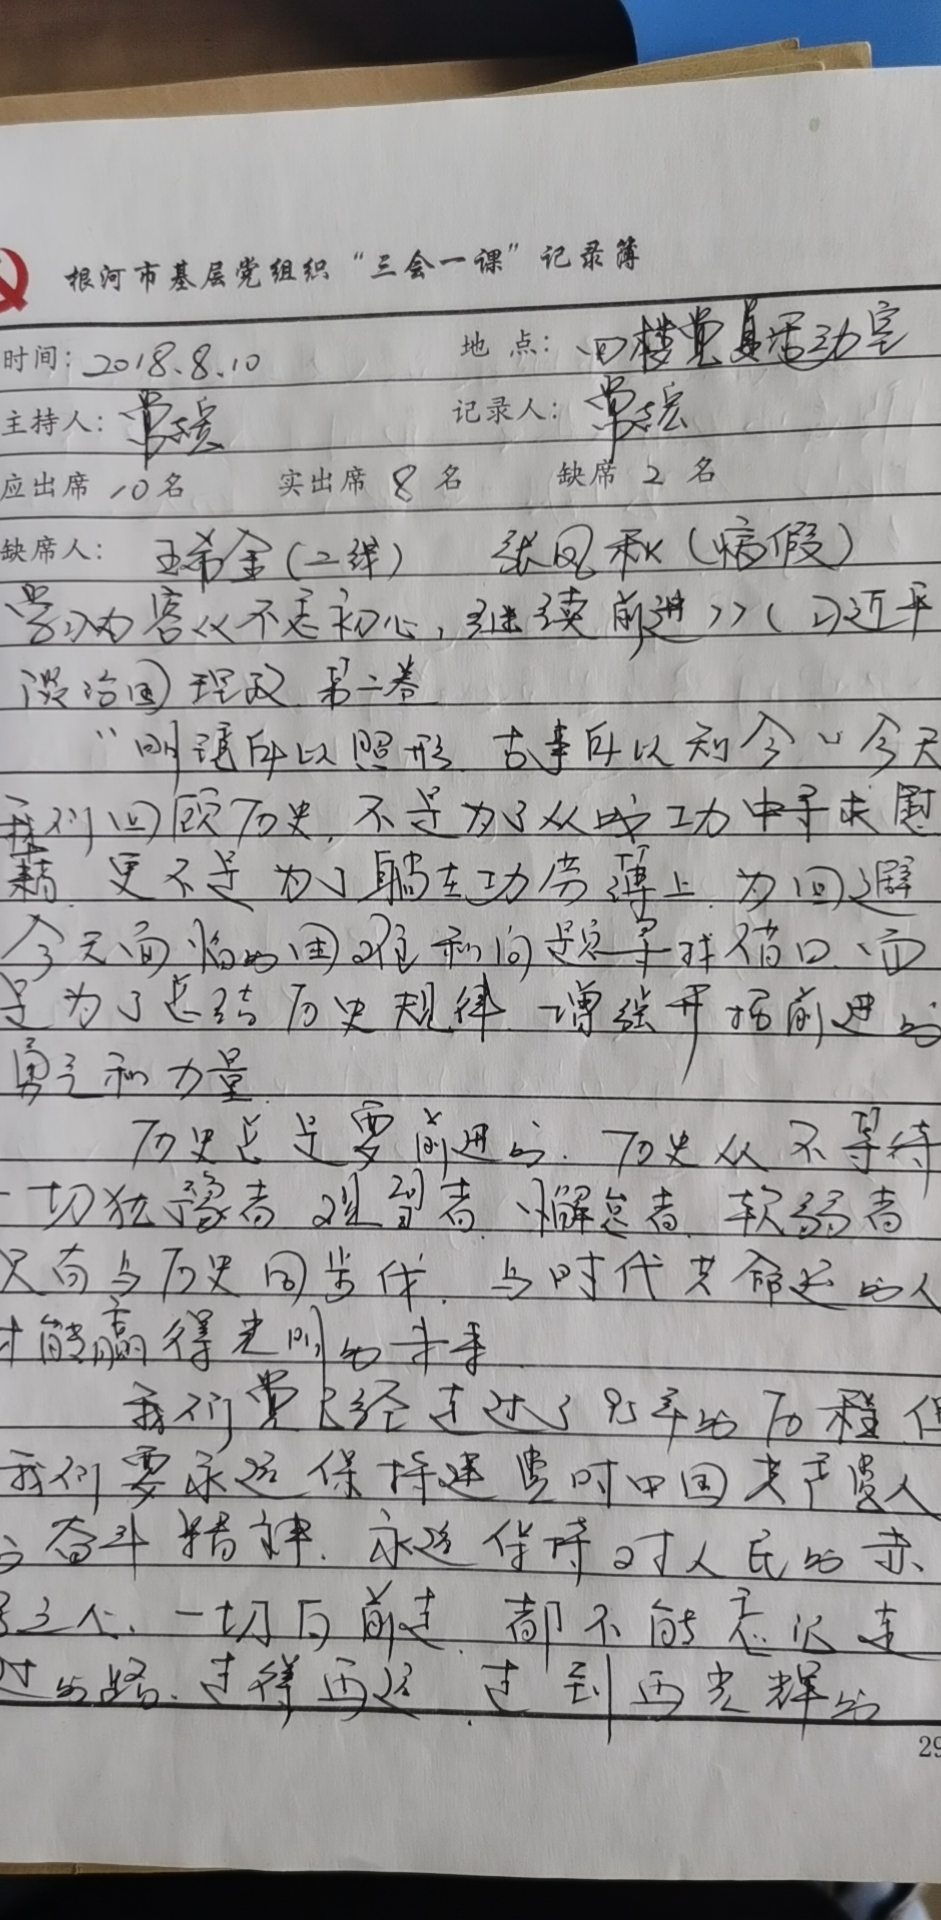 根河市基层党组织“三会一课”记录簿
时间：2018.8.10 地点：四楼党员活动室
主持人：常 记录人：常
应出席 10 名 实出席 8 名 缺席 2 名
缺席人： 王希金(二线) 张凤秋(病假)
学习内容《不忘初心,继续前进》(习近平
谈治国理政 第二卷
“明镜所以照形 古事所以知今” 今天
我们回顾历史,不是为了从成功中寻求慰
藉 更不是为了躺在功劳薄上.为回避
今天面临的困难和问题寻找借口、而
是为了总结历史规律 增强开拓前进的
勇气和力量
历史总是要前进的.历史从不等待
一切犹豫者 观望者 懈怠者 软弱者
只有与历史同步伐.与时代共命运的人
才能赢得光明的未来
我们党已经走过了95年的历程 但
我们要永远保持建党时中国共产党人
的奋斗精神.永远保持对人民的赤
子之心、一切向前走.都不能忘记走
过的路.走得再远.走到再光辉的
29